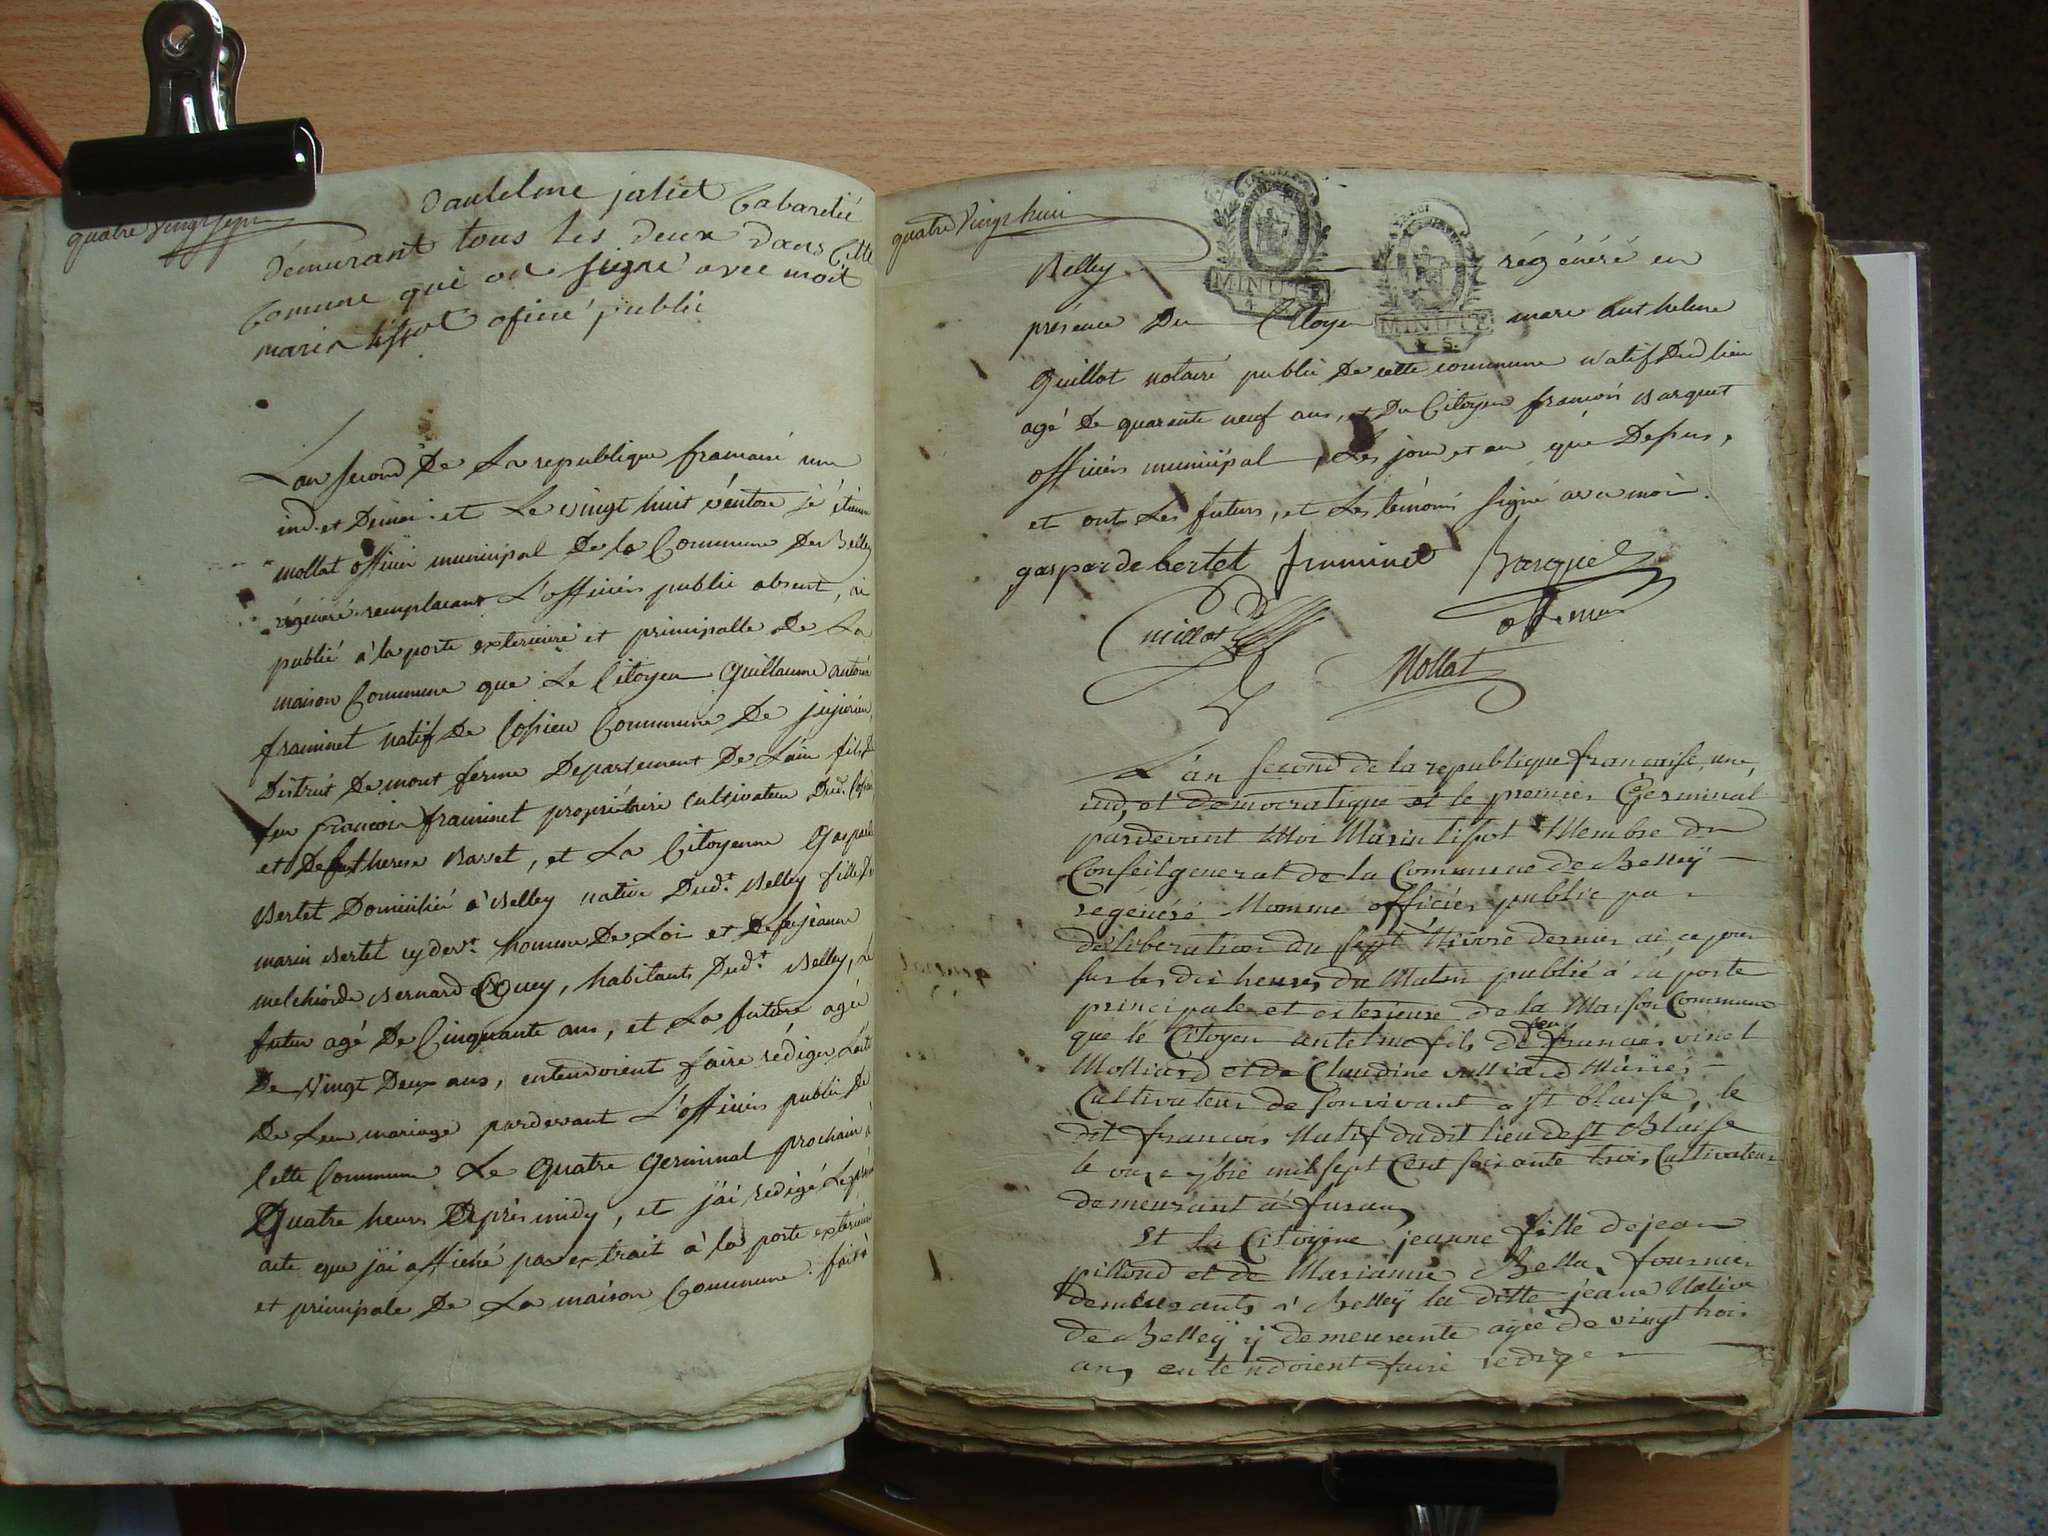 quatre vingt sept
d'antelme joliet Cabaretié
demurant tous les deux dans Cette
Comune qui on signé avec moit
marin tissot ofisié public
L'an second De La republique francaise une
ind. et Démoc. et Le vingt huit ventose je étienne
mollat officier municipal De la Commune De Belley
régénéré remplacant L'officier public absent, ai
publié à la porte exterieure et principalle De La
maison Commune que Le Citoyen Guillaume antoine
framinet natif De Cossieu Commune De jujurieu
District De mont ferme Departement De L'ain fils De
feu francois framinet propriétaire cultivateur Dud. Cossieu
et De feu therese Barret, et La Citoyenne Gasparde
Bertet Domiciliée à Belley native Dud.t Belley fille De
marin Bertet cy dev.t homme De Loi et De feu jeanne
melchiorde Bernard Cuey, habitants Dud.t Belley, Le
futur agé De Cinquante ans, et La future agée
De Vingt Deux ans, entendoient faire rédiger L'acte
De Leur mariage pardevant L'officier public De
Cette Commune Le Quatre germinal prochain à
Quatre heures Après midy, et j'ai redigé Le présent
acte que j'ai affiché par extrait à la porte exterieure
et principale De La maison Commune. fait à
quatre Vingt huit
MINUTE
4. S.
MINUTE
4. S.
Belley régénéré en
présence Du Citoyen marc Anthelme
Guillot notaire public De cette commune natif Dud lieu
agé De quarante neuf ans, et Du Citoyen francois Barquet
officier municipal, Les jour et an que Dessus,
et ont Les futurs, et Les témoins signé avec moi.
gasparde bertet framinet Barquet
Guillot
off. mun
Mollat
L'an second de la republique francaise, une,
ind, et democratique et le premier Germinal
pardevant Moi Marin tissot Membre du
Conseil general de la Commune de Belleÿ
regénéré Nomme officier public par
déliberation du sept Nivose dernier ai ce jour
sur les dix heures du Matin publié à la porte
principale et exterieure de la Maison Commune
que le Citoyen antelme fils de feu francois vinet
Molliard et de Claudine vulliard Mariés
Cultivateur de son vivant a st blaise, le
dit francois Natif dudit lieu de st Blaise
le onze 7bre mil sept Cent soixante trois Cultivateur
demeurant à furans
Et la Citoyene jeanne fille de jean
pillond et de Marianne Bella, fournier
demeurants à Belleÿ la ditte jeane Native
de Belleÿ y demeurante agée de vingt trois
ans entendoient faire redige